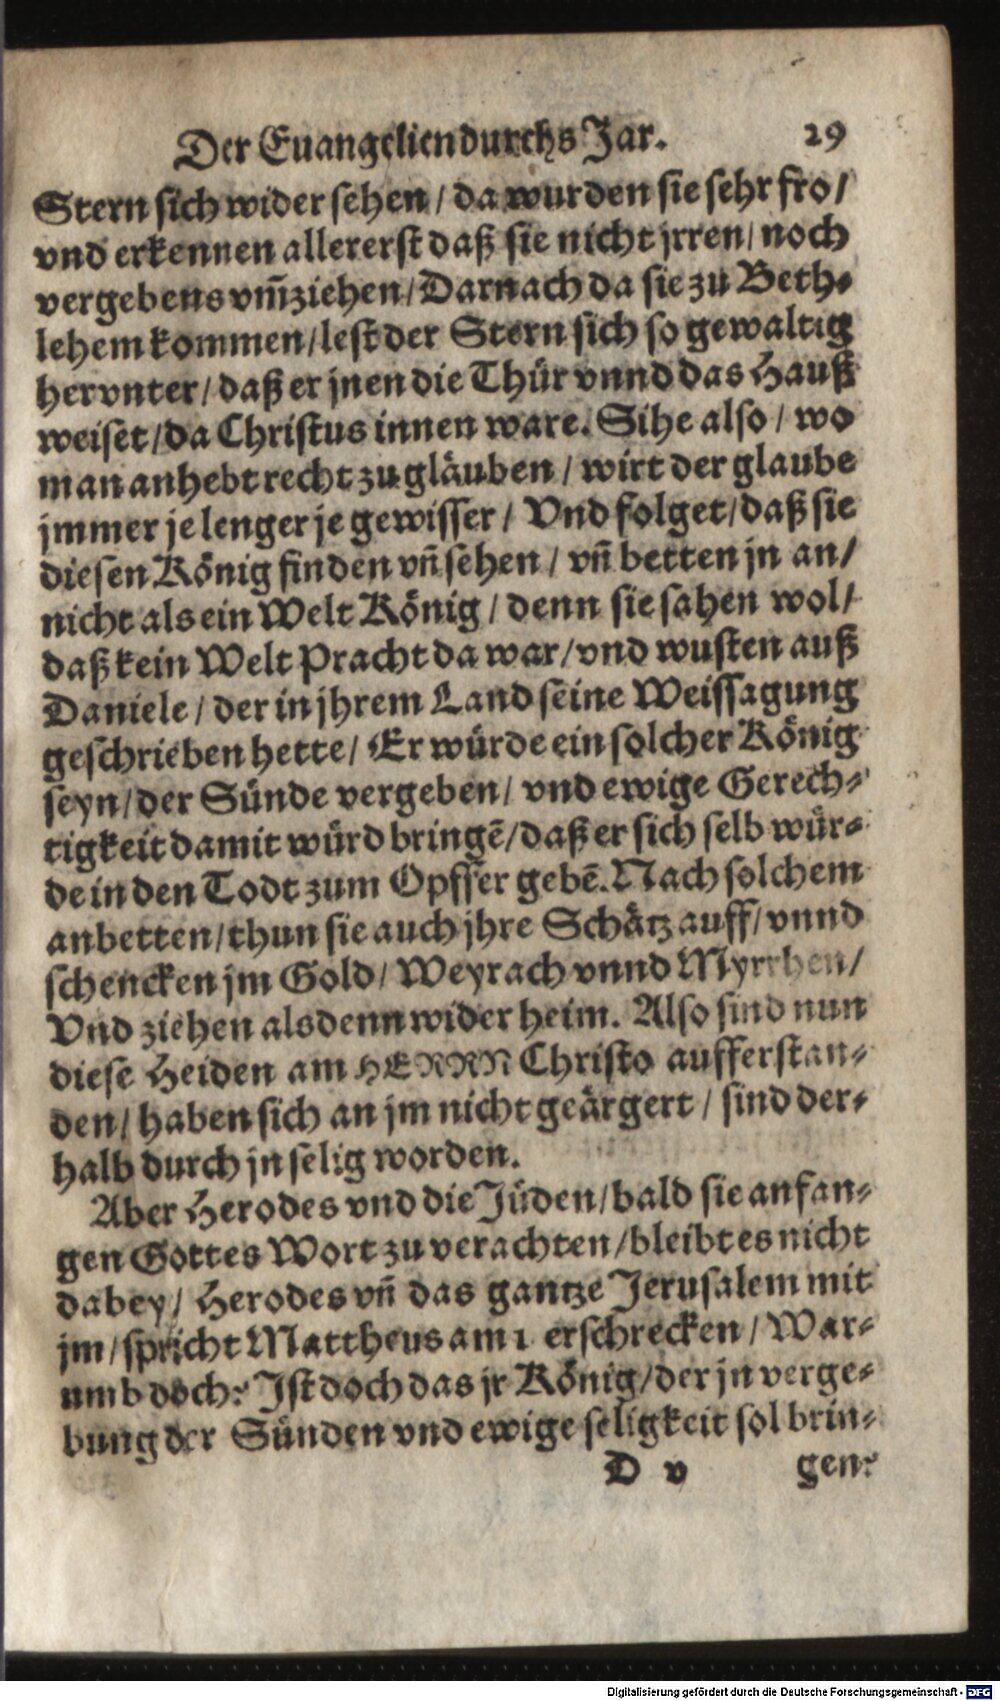 Der Euangelien durchs Jar. 29
Stern sich wider sehen / da wurden sie sehr fro /
vnd erkennen allererst daß sie nicht jrren / noch
vergebens vm̃ziehen / Darnach da sie zu Beth-
lehem kommen / lest der Stern sich so gewaltig
hervnter / daß er jnen die Thür vnnd das Hauß
weiset / da Christus innen ware. Sihe also / wo
man anhebt recht zu gläuben / wirt der glaube
jmmer je lenger je gewisser / Vnd folget / daß sie
diesen König finden vñ sehen / vñ betten jn an /
nicht als ein Welt König / denn sie sahen wol /
daß kein Welt Pracht da war / vnd wusten auß
Daniele / der in jhrem Land seine Weissagung
geschrieben hette / Er würde ein solcher König
seyn / der Sünde vergeben / vnd ewige Gerech-
tigkeit damit würd bringẽ / daß er sich selb wür-
de in den Todt zum Opffer gebẽ. Nach solchem
anbetten / thun sie auch jhre Schätz auff / vnnd
schencken jm Gold / Weyrach vnnd Myrrhen /
Vnd ziehen alsdenn wider heim. Also sind nun
diese Heiden am HERRN Christo aufferstan-
den / haben sich an jm nicht geärgert / sind der-
halb durch jn selig worden.
Aber Herodes vnd die Jüden / bald sie anfan-
gen Gottes Wort zu verachten / bleibt es nicht
dabey / Herodes vñ das gantze Jerusalem mit
jm / spricht Mattheus am 1 erschrecken / War-
umb doch? Ist doch das jr König / der jn verge-
bung der Sünden vnd ewige seligkeit sol brin-
D v gen?
Digitalisierung gefördert durch die Deutsche Forschungsgemeinschaft - DFG